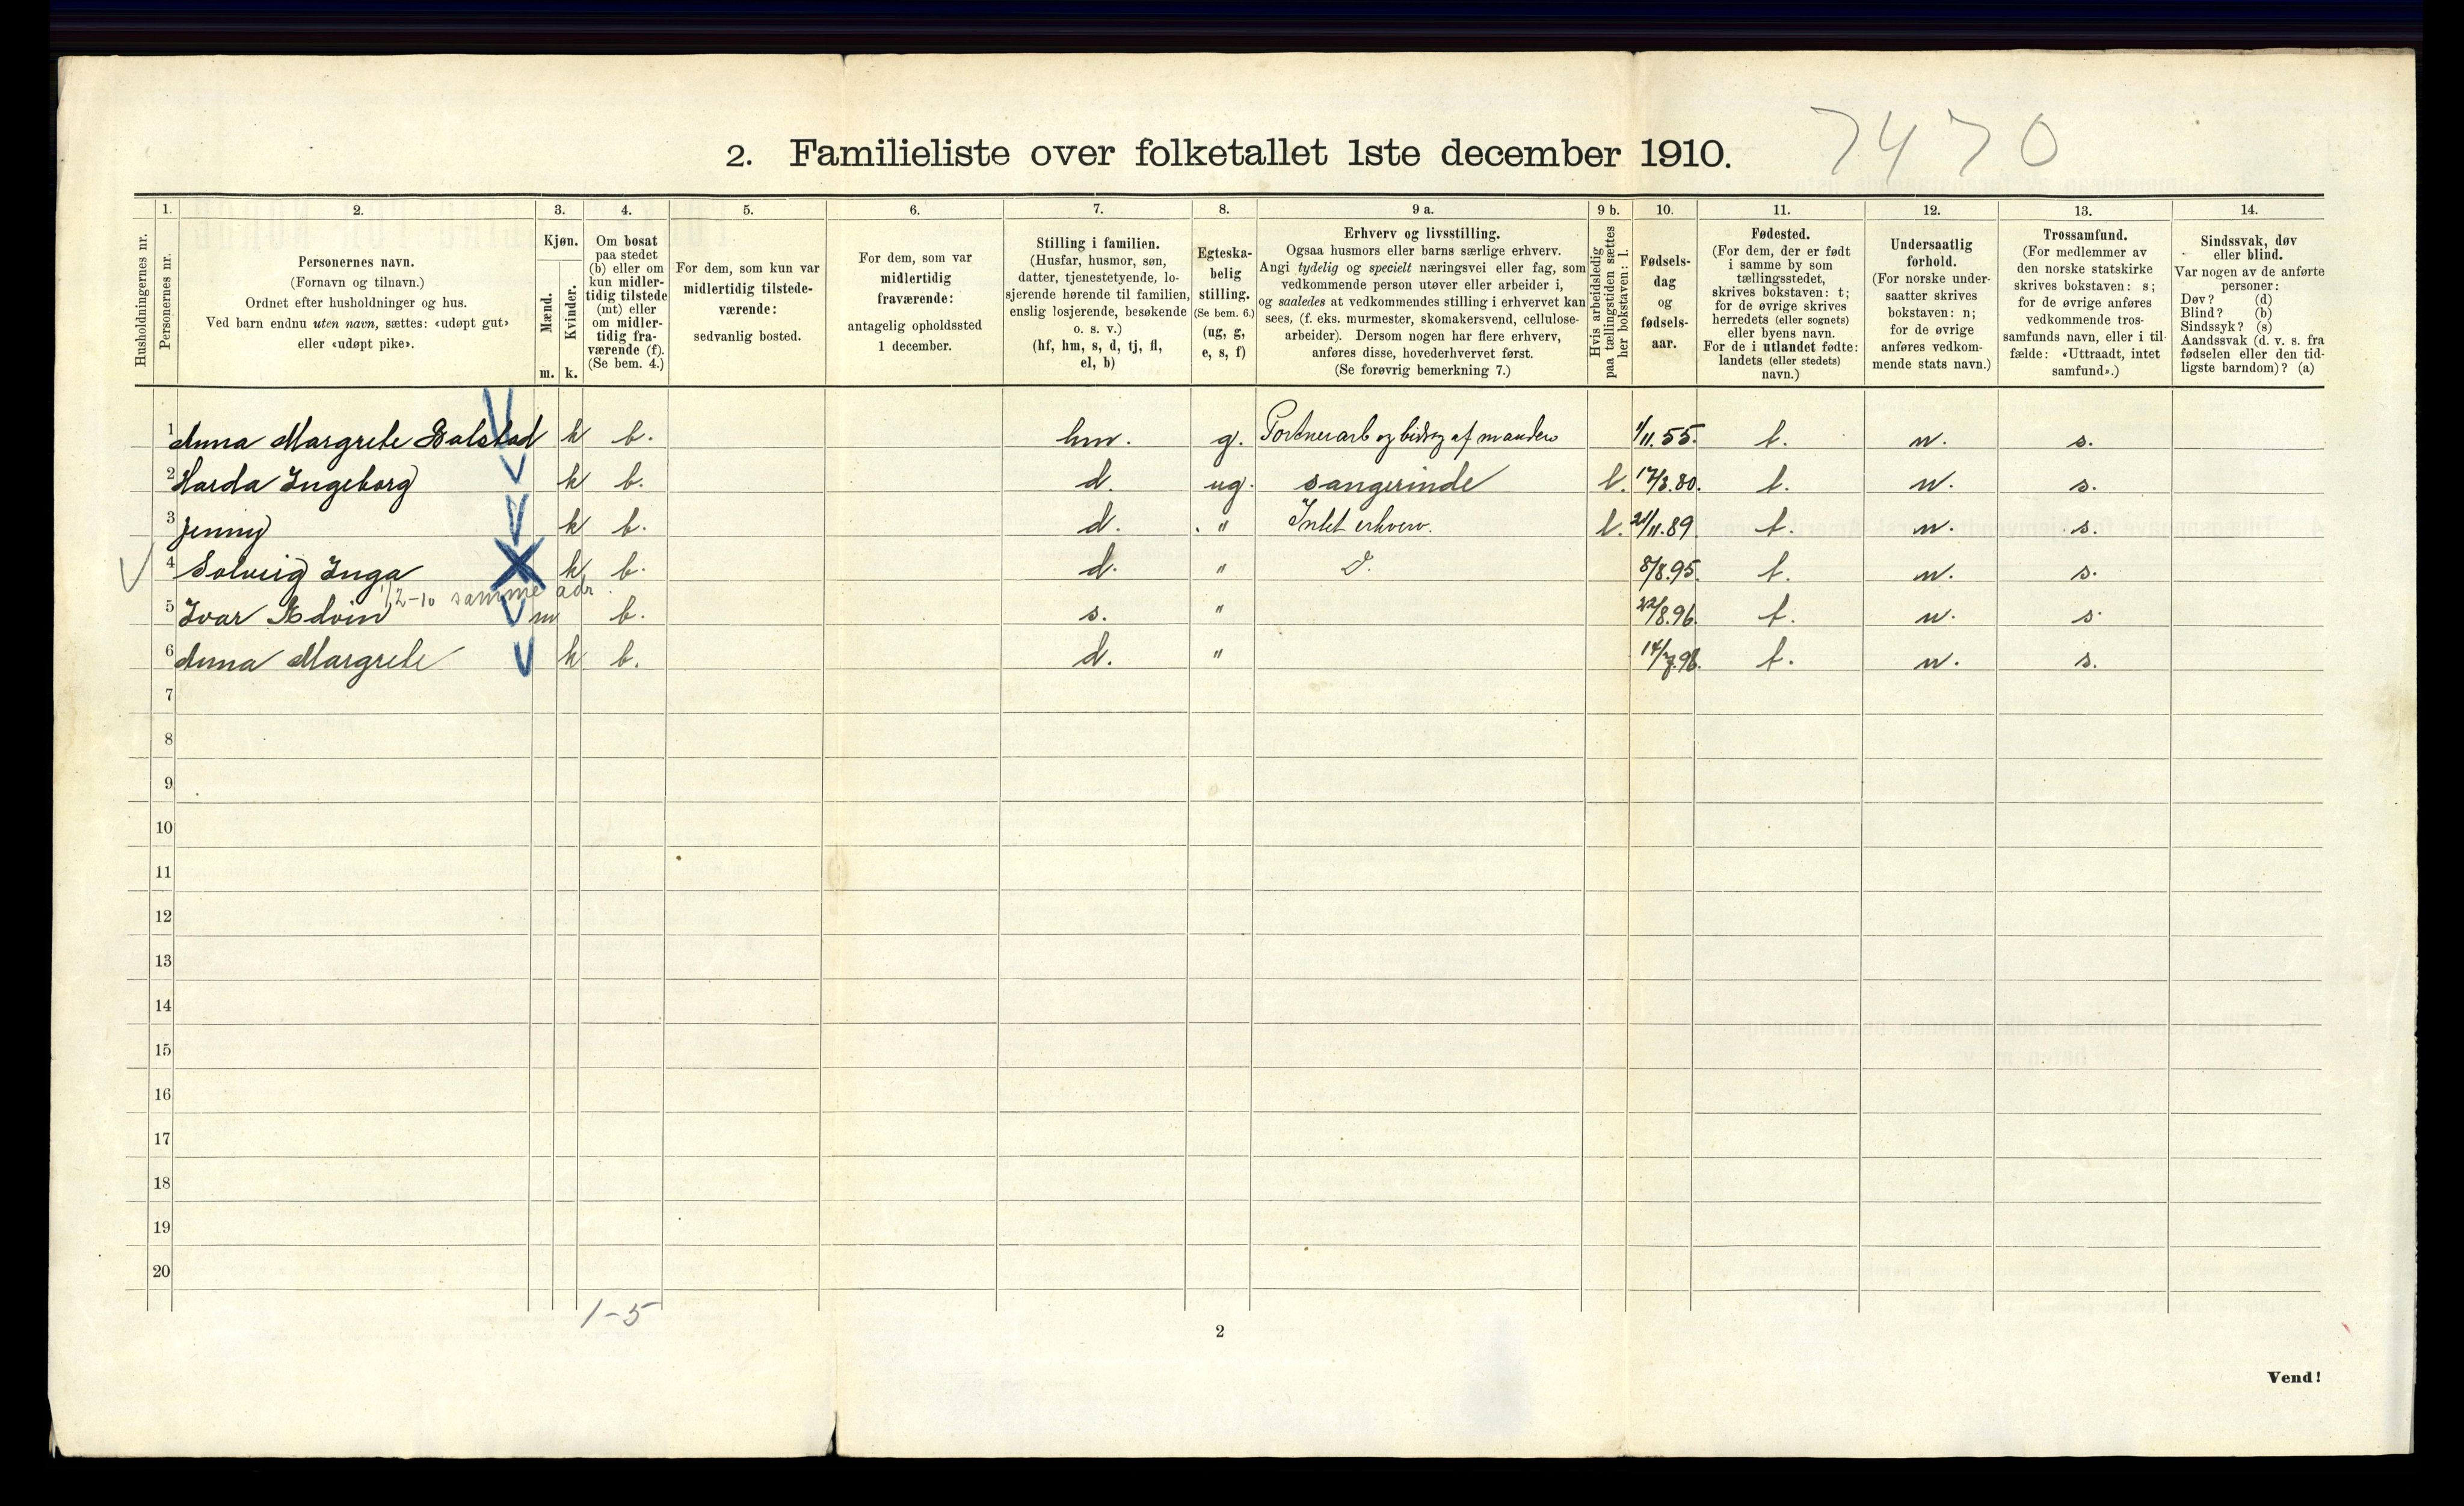 7470
2. Familieliste over folketallet 1ste december 1910.
Husholdningernes nr.
1.
Personernes nr.
2.
Personernes navn.
(Fornavn og tilnavn.)
Ordnet efter husholdninger og hus.
Ved barn endnu uten navn, sættes: «udøpt gut»
eller «udøpt pike».
3.
Kjøn.
Mænd.
Kvinder.
m. k.
4.
Om bosat
paa stedet
(b) eller om
kun midler-
tidig tilstede
(mt) eller
om midler-
tidig fra-
værende (f).
(Se bem. 4.)
5.
For dem, som kun var
midlertidig tilstede-
værende:
sedvanlig bosted.
6.
For dem, som var
midlertidig
fraværende:
antagelig opholdssted
1 december.
7.
Stilling i familien.
(Husfar, husmor, søn,
datter, tjenestetyende, lo-
sjerende hørende til familien,
enslig losjerende, besøkende
o. s. v.)
(hf, hm, s, d, tj, fl,
el, b)
8.
Egteska-
belig
stilling.
(Se bem. 6.)
(ug, g,
e, s, f)
9 a.
Erhverv og livsstilling.
Ogsaa husmors eller barns særlige erhverv.
Angi tydelig og specielt næringsvei eller fag, som
vedkommende person utøver eller arbeider i,
og saaledes at vedkommendes stilling i erhvervet kan
sees, (f. eks. murmester, skomakersvend, cellulose-
arbeider). Dersom nogen har flere erhverv,
anføres disse, hovederhvervet først.
(Se forøvrig bemerkning 7.)
9 b.
Hvis arbeidsledig
paa tællingstiden sættes
her bokstaven: l.
10.
Fødsels-
dag
og
fødsels-
aar.
11.
Fødested.
(For dem, der er født
i samme by som
tællingsstedet,
skrives bokstaven: t;
for de øvrige skrives
herredets (eller sognets)
eller byens navn.
For de i utlandet fødte:
landets (eller stedets)
navn.)
12.
Undersaatlig
forhold.
(For norske under-
saatter skrives
bokstaven: n;
for de øvrige
anføres vedkom-
mende stats navn.)
13.
Trossamfund.
(For medlemmer av
den norske statskirke
skrives bokstaven: s;
for de øvrige anføres
vedkommende tros-
samfunds navn, eller i til-
fælde: «Uttraadt, intet
samfund».)
14.
Sindssvak, døv
eller blind.
Var nogen av de anførte
personer:
Døv? (d)
Blind? (b)
Sindssyk? (s)
Aandssvak (d. v. s. fra
fødselen eller den tid-
ligste barndom)? (a)
1 Anna Margrete Balstad k b. hm. g. Portnerarb og bidrag af manden 1/11.55. t. n. s.
2 Harda Ingeborg k b. d. ug. sangerinde l. 17/3.80. t. n. s.
3 Jenny k b. d. " Intet erhverv. l. 21/11.89 t. n. s.
4 Solveig Inga k b. d. " D. 8/8.95. t. n. s.
1/2-10 samme adr.
5 Ivar Edvin m b. s. " 22/8.96. t. n. s.
6 Anna Margrete k b. d. " 14/7.98. t. n. s.
7
8
9
10
11
12
13
14
15
16
17
18
19
20
1-5
2
Vend!